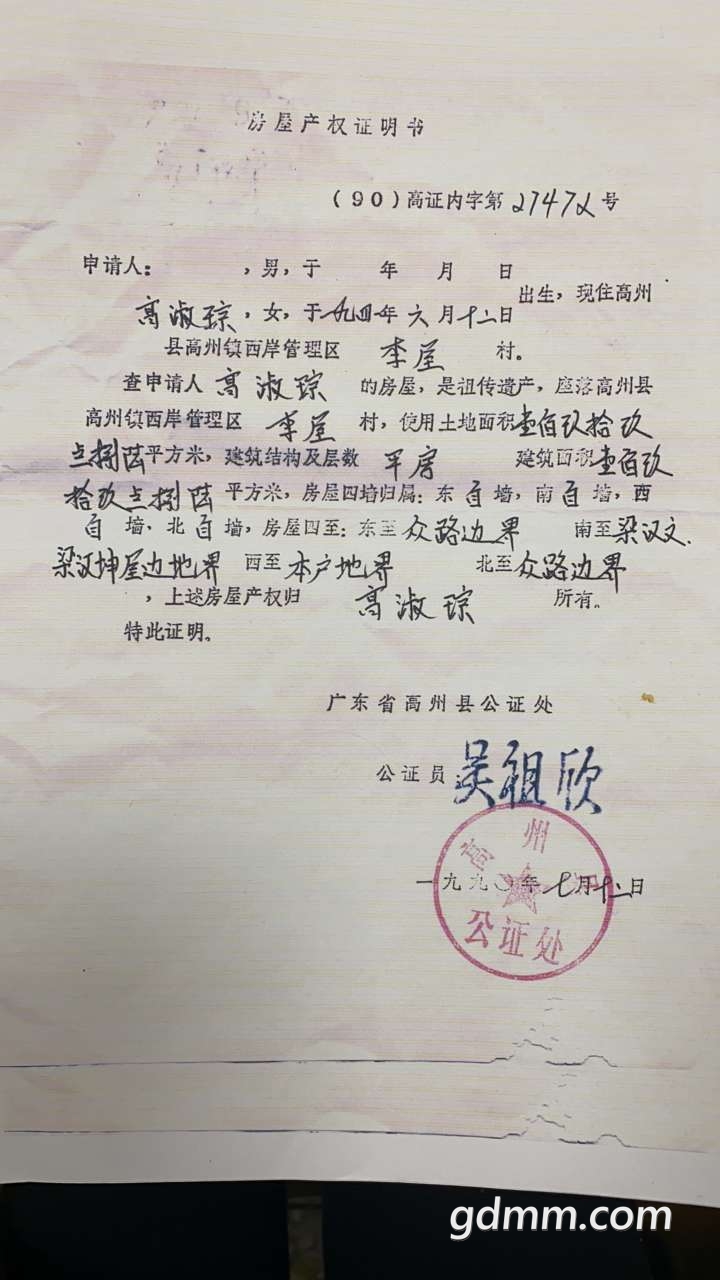 房屋产权证明书
(90)高证内字第27472号
申请人: ,男,于 年 月 日
高淑琮,女,于一九四 年六月十二日出生,现住高州
县高州镇西岸管理区 李屋 村。
查申请人高淑琮的房屋,是祖传遗产,座落高州县
高州镇西岸管理区 李屋 村,使用土地面积壹佰玖拾玖
点捌陆平方米,建筑结构及层数 平房 建筑面积壹佰玖
拾玖点捌陆平方米,房屋四墙归属:东自墙,南自墙,西
自墙,北自墙,房屋四至:东至众路边界 南至梁汉文.
梁汉坤屋边地界 西至本户地界 北至众路边界
,上述房屋产权归 高淑琮 所有。
特此证明。
广东省高州县公证处
公证员:吴祖欣
一九九〇年七月十二日
高州
公证处
gdmm.com